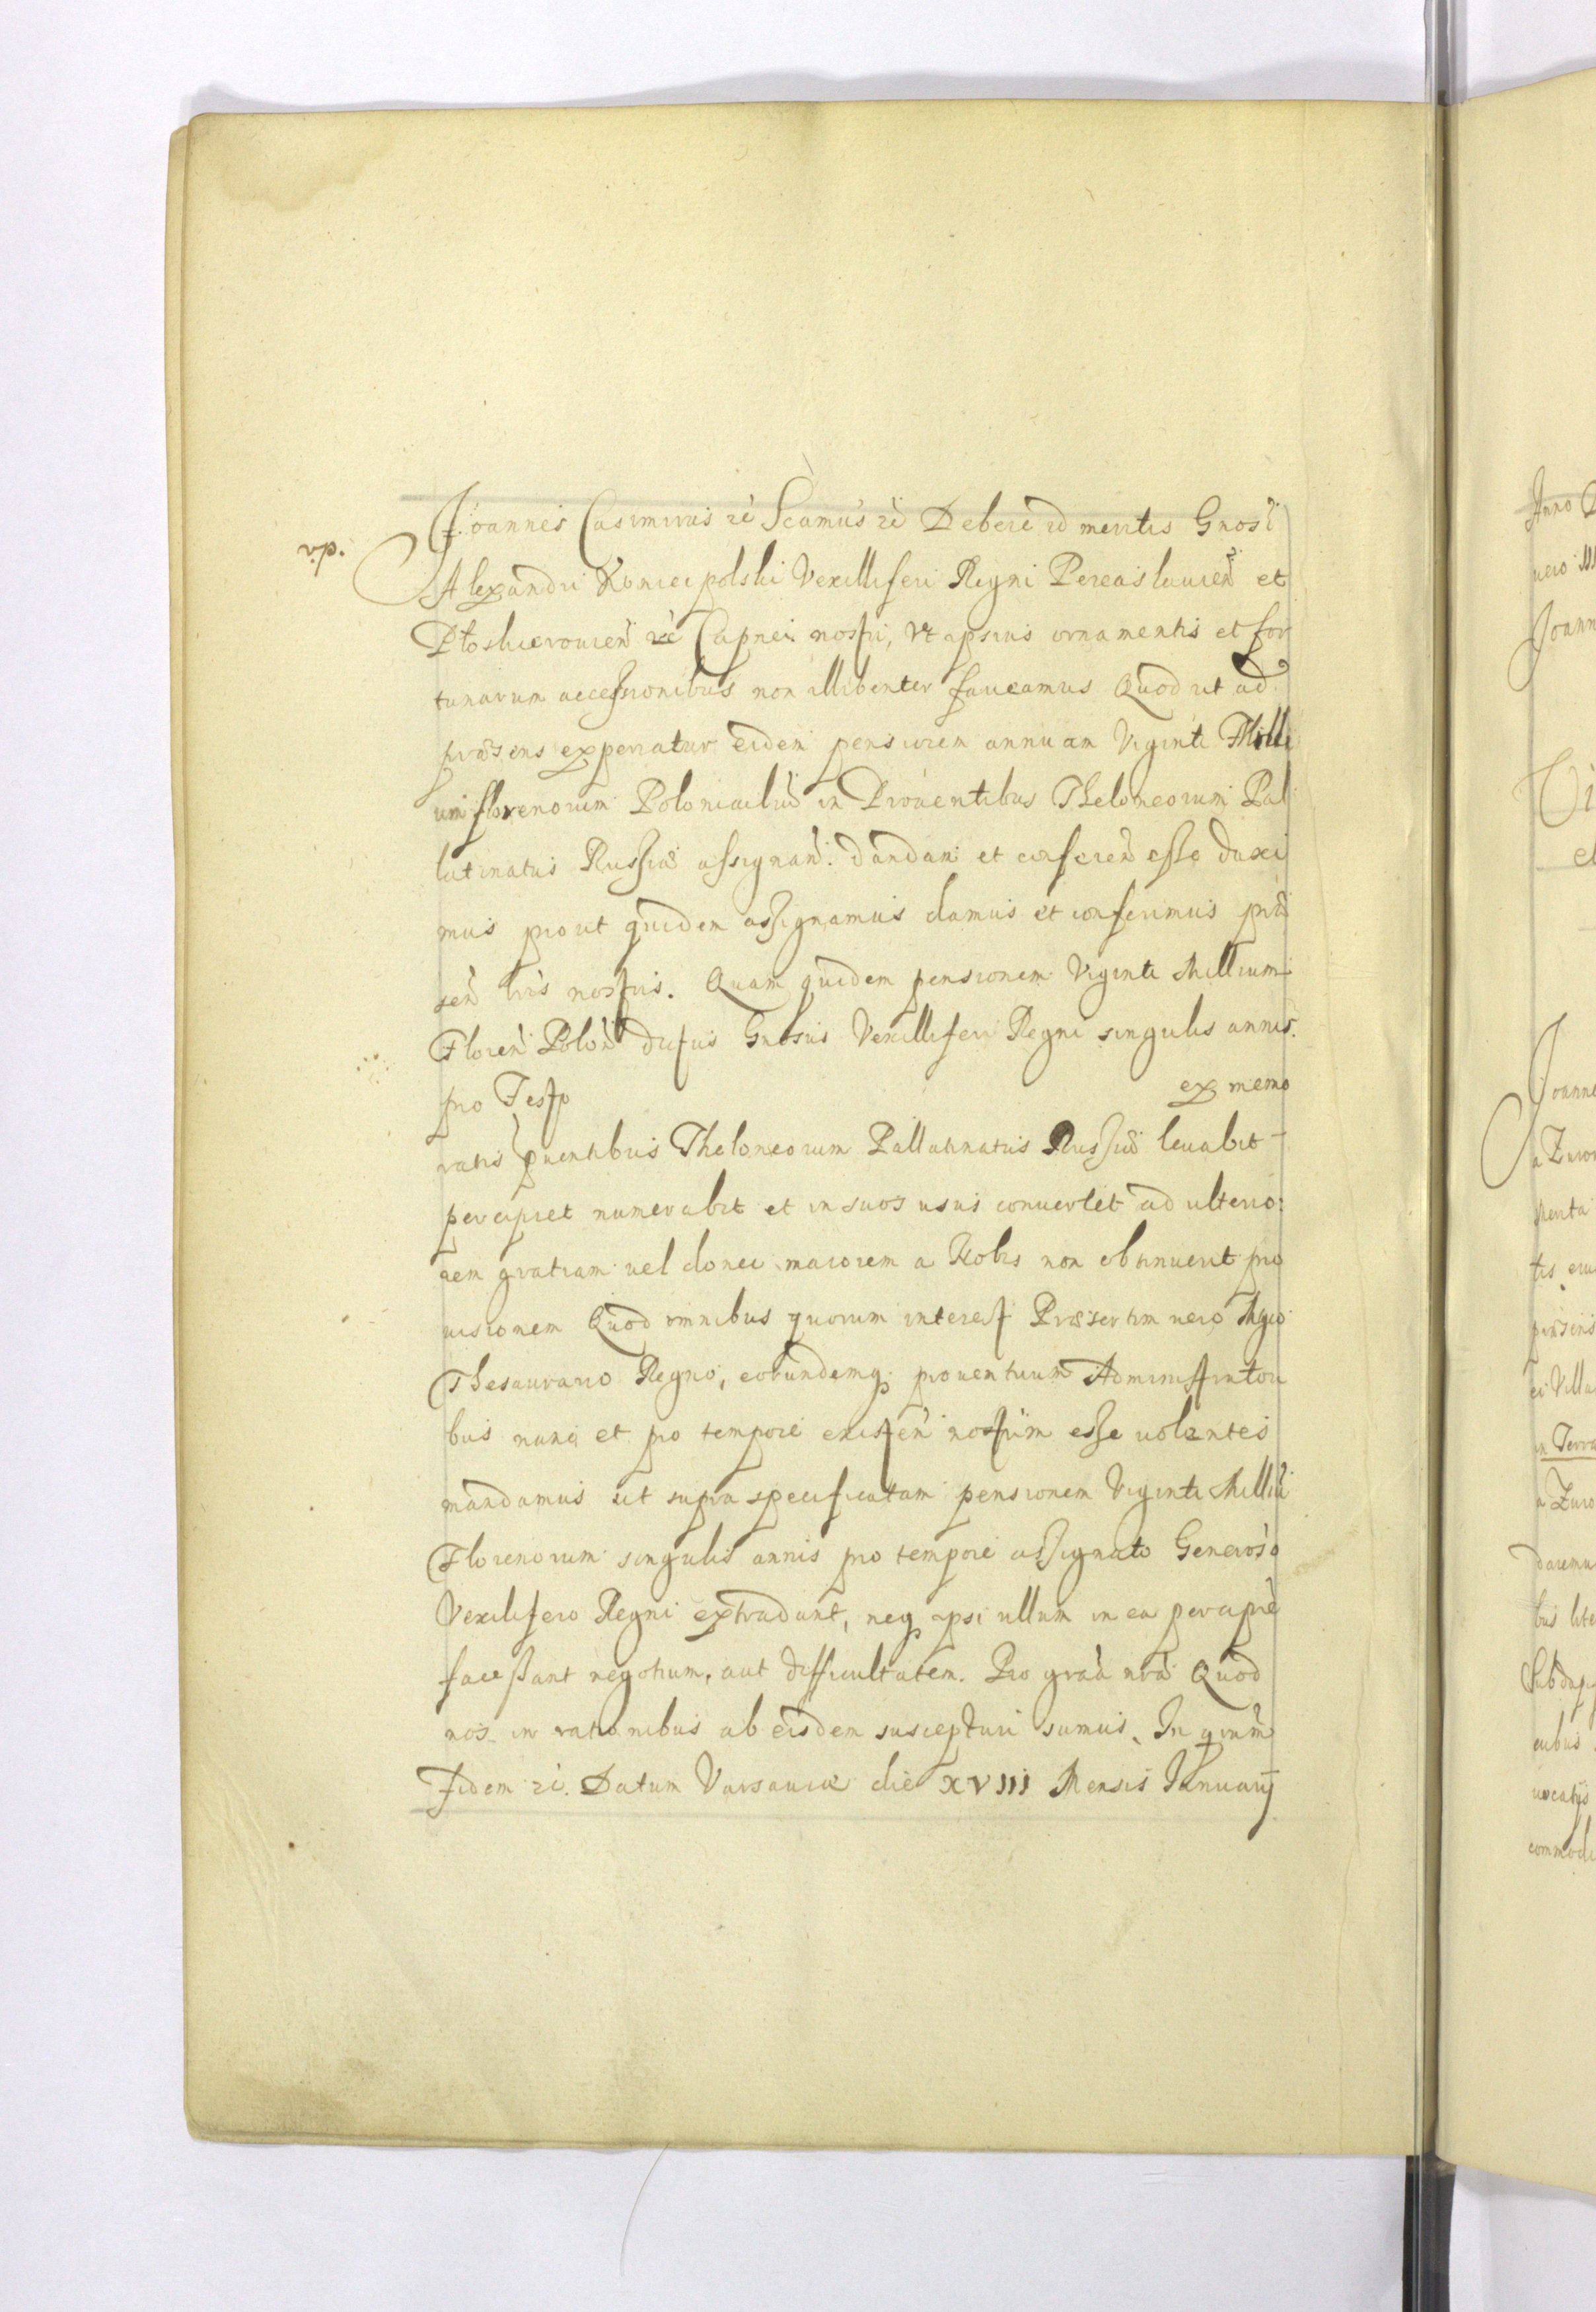 Joannes Casimirus etc Scamus etc Debere id meritis Gnosi
Alexandri Koniecpolski Vexilliferi Regni Pereaslauien et
Ploskierouien etc Capnei nostri, Vt ipsius ornamentis et for
tunarum accessionibus non illibenter faueamus Quod ut ad
præsens experiatur eidem pensionem annuam Viginti Milli
um florenorum Polonicaliu in Prouentibus Theloneorum Pal
latinatus Russiæ assignan: dandam et conferen esse duxi
mus prout quidem assignamus damus et conferimus præ
sen lris nostris. Quam quidem pensionem Viginti Millium
Floren Polon dictus Gnosus Vexillifer Regni singulis annis
pro Festo ex memo
ratis puentibus Theloneorum Pallatinatus Russiæ leuabit
percipiet numerabit et in suos usus conuertet ad ulterio:
rem gratiam uel donec maiorem a Nobis non obtinuerit pro
uisionem Quod omnibus quorum interest Præsertim uero Mgco
Thesaurario Regni, eorundemq prouentuum Administratori
bus nunc et pro tempore existen nostrum esse uolentes
mandamus ut supra specificatam pensionem Viginti Milliu
Florenorum singulis annis pro tempore assignato Generoso
Vexilifero Regni extradant, neq ipsi ullum in ea percipie
facessant negotium, aut difficultatem. Pro graa nra Quod
nos in rationibus ab eisdem suscepturi sumus. In quorum
Fidem etc. Datum Varsauiæ die XVIII Mensis Januarij